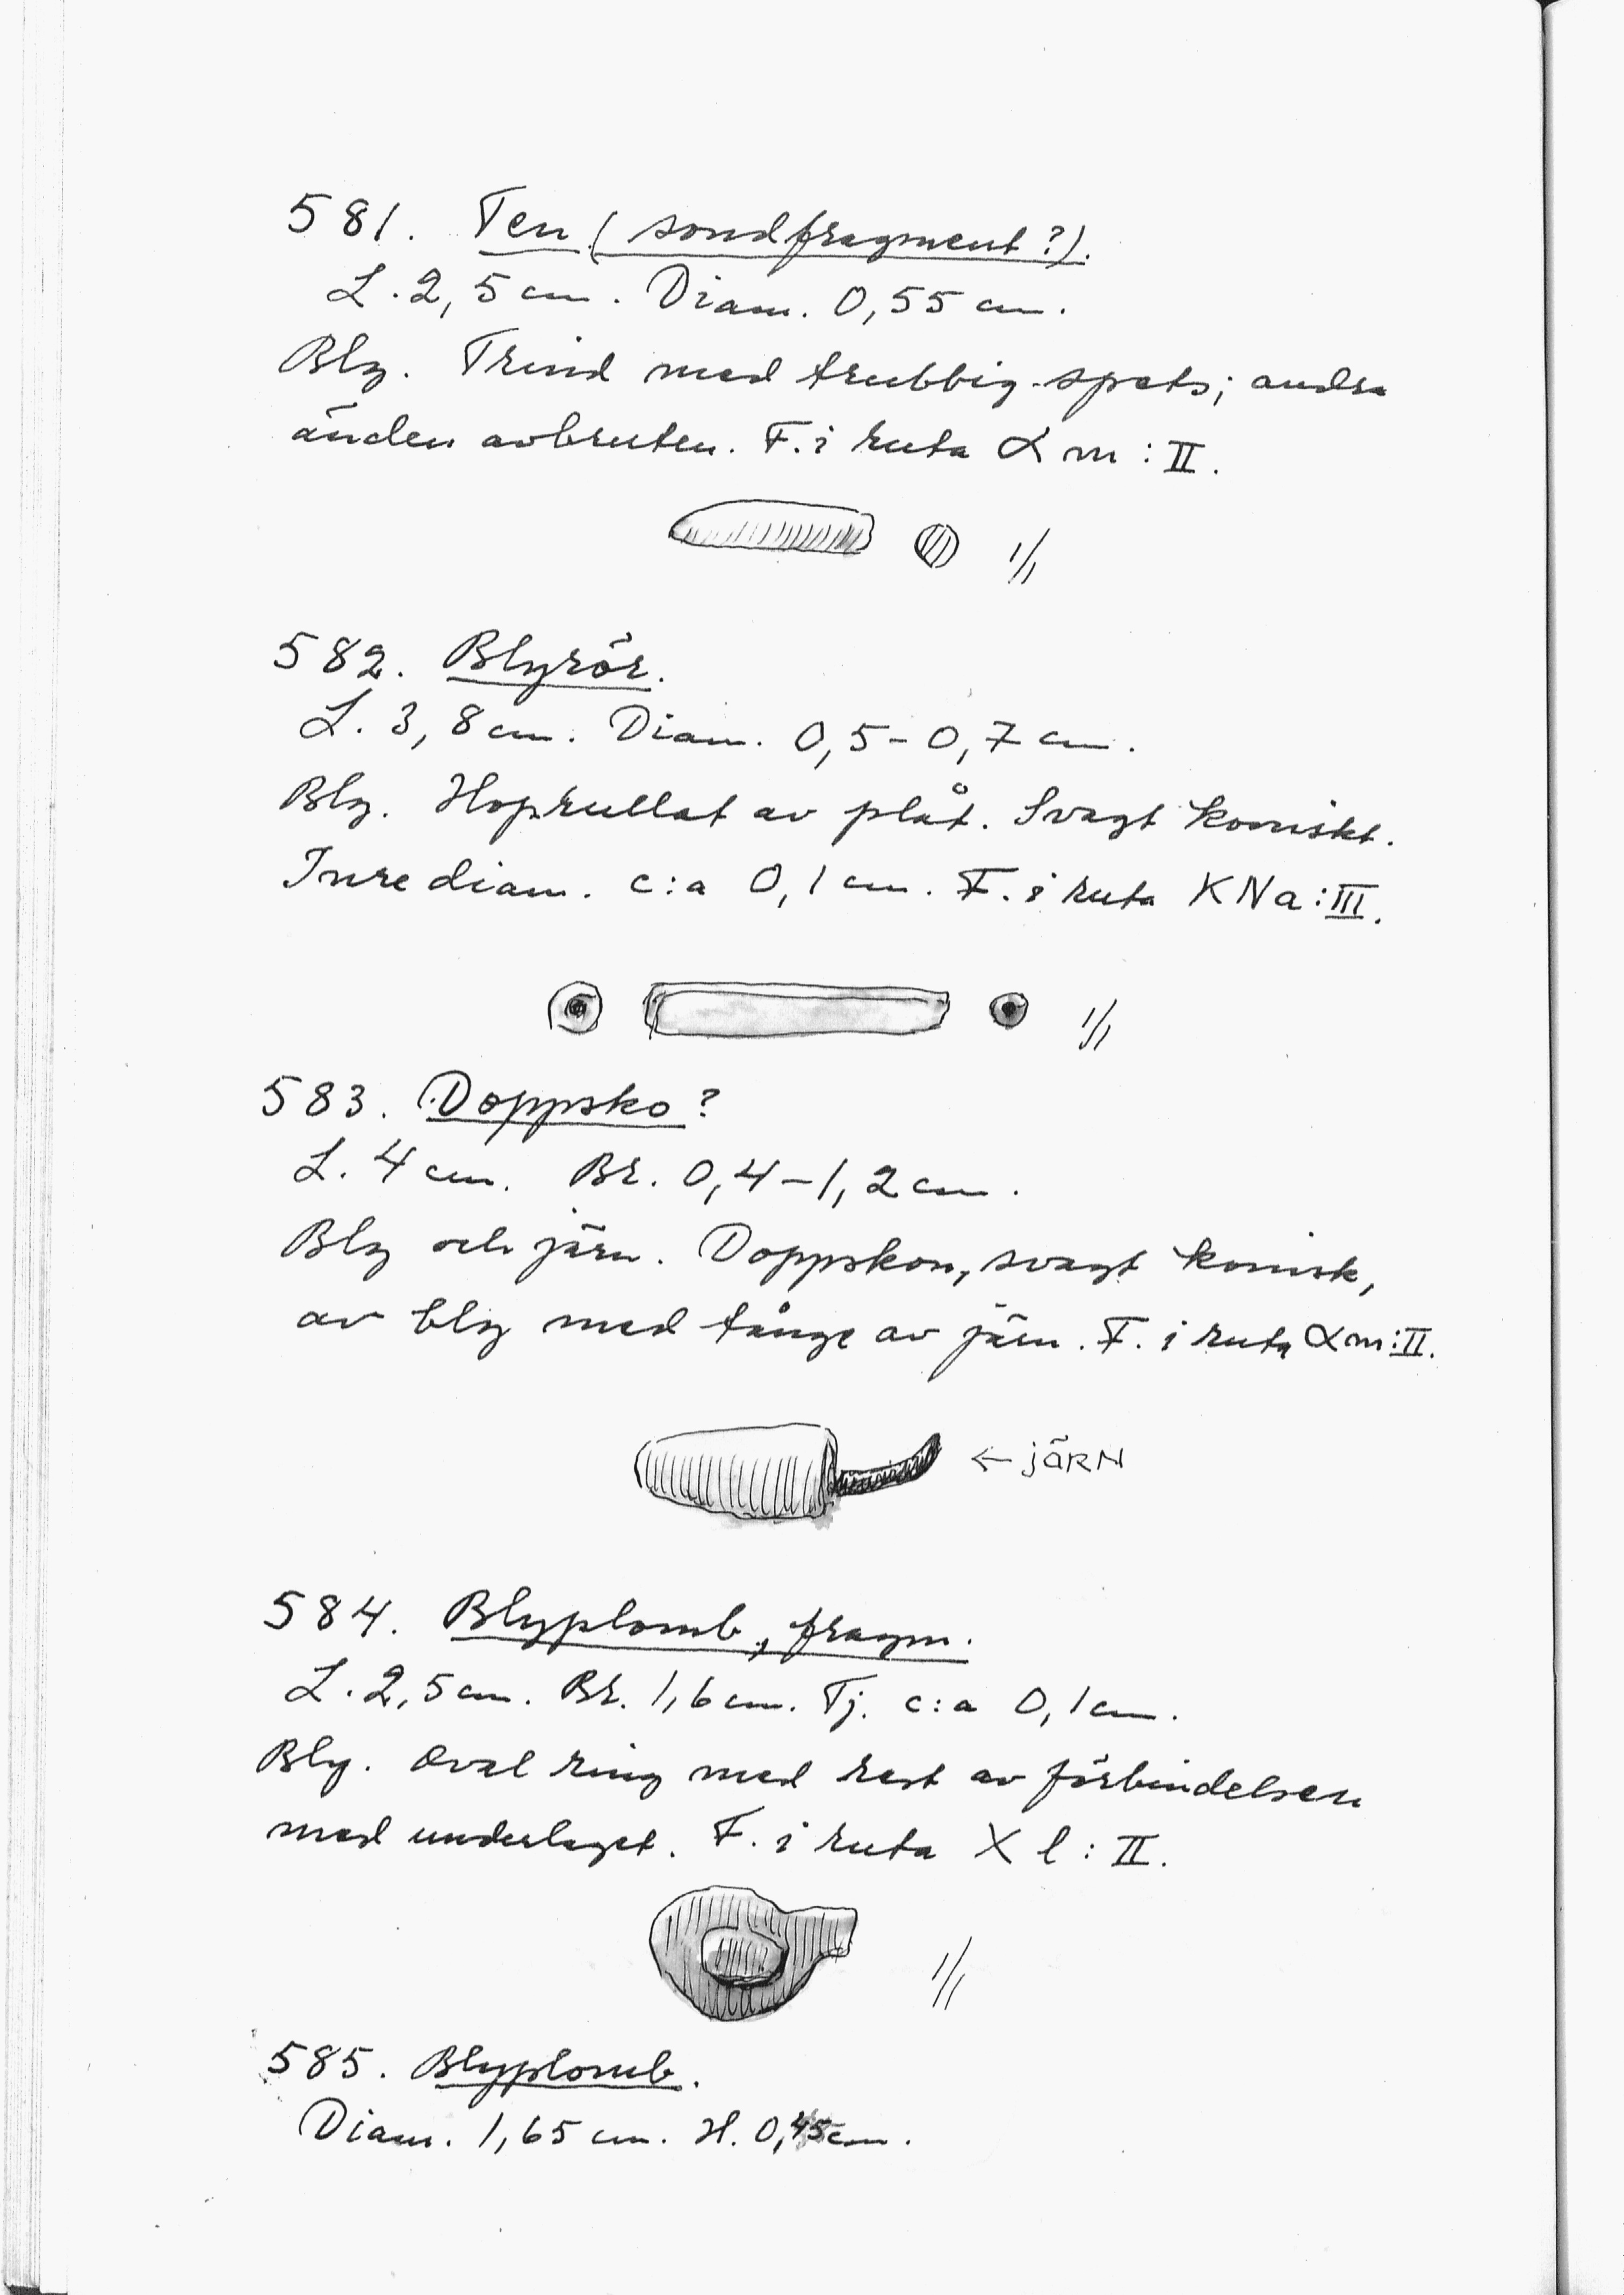 581. Ten (sondfragment?).
L. 2,5 cm. Diam. 0,55 cm.
Bly. Trind med trubbig spets; andra
änden avbruten. F. i ruta α m : II.
1/1
582. Blyrör.
L. 3,8 cm. Diam. 0,5 - 0,7 cm.
Bly. Hoprullat av plåt. Svagt koniskt.
Inre diam. c:a 0,1 cm. F. i ruta KNa : III.
1/1
583. Doppsko?
L. 4 cm. Br. 0,4 - 1,2 cm.
Bly och järn. Doppskon, svagt konisk,
av bly med tånge av järn. F. i ruta α m : II.
← JÄRN
584. Blyplomb, fragm.
L. 2,5 cm. Br. 1,6 cm. Tj. c:a 0,1 cm.
Bly. Oval ring med rest av förbindelsen
med underlaget. F. i ruta X l : II.
1/1
585. Blyplomb.
Diam. 1,65 cm. H. 0,45 cm.